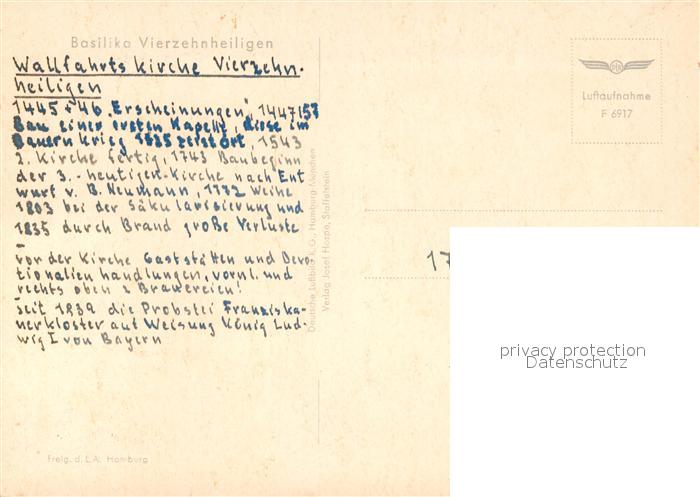 Basilika Vierzehnheiligen
Wallfahrtskirche Vierzehn-
heiligen
1445 + 46 „Erscheinungen", 1447/57
Bau einer ersten Kapelle, diese im
Bauernkrieg 1525 zerstört, 1543
2. Kirche fertig, 1743 Baubeginn
der 3. - heutigen - Kirche nach Ent
wurf v. B. Neumann, 1772 Weihe
1803 bei der Säkularisierung und
1835 durch Brand große Verluste
-
vor der Kirche Gaststätten und Devo-
tionalienhandlungen, vornl. und
rechts oben 2 Brauereien!
-
seit 1839 die Probstei Franziska-
nerkloster auf Weisung König Lud-
wig I von Bayern
Freig. d. L.A. Hamburg
Deutsche Luftbild K.G., Hamburg-München
Verlag Josef Hospe, Staffelstein
Luftaufnahme
F 6917
17
privacy protection
Datenschutz